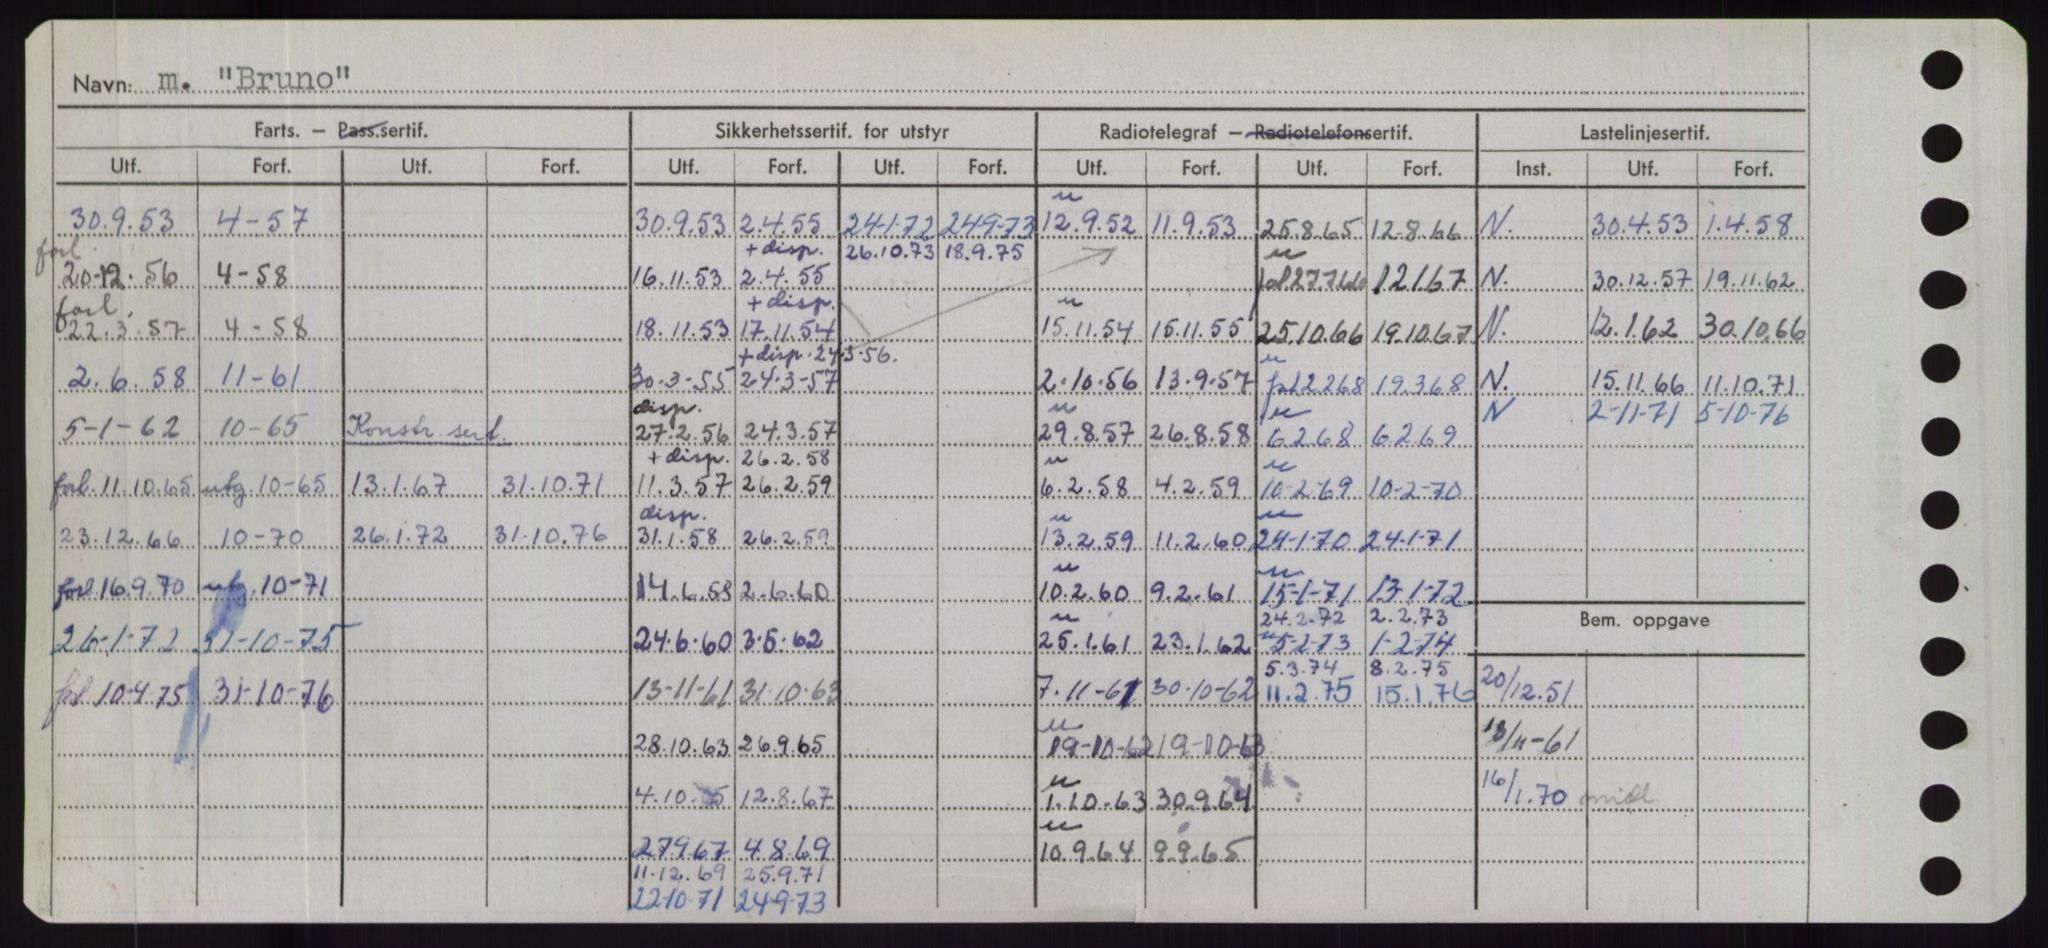 Navn: m. "Bruno"
Farts. – Pass.sertif. Sikkerhetssertif. for utstyr Radiotelegraf – Radiotelefonsertif. Lastelinjesertif.
Utf. Forf. Utf. Forf. Utf. Forf. Utf. Forf. Utf. Forf. Utf. Forf. Inst. Utf. Forf.
u
30.9.53 4-57 30.9.53 2.4.55 24-1-72 24-9-73 12.9.52 11.9.53 25.8.65 12.8.66 N. 30.4.53 1.4.58
forl. + disp. 26.10.73 18.9.75 u
20-12.56 4-58 16.11.53 2.4.55 27.7.66 12.1.67 N. 30.12.57 19.11.62
forl. + disp. u
22.3.57 4-58 18.11.53 17.11.54 15.11.54 15.11.55 25.10.66 19.10.67 N. 12.1.62 30.10.66
+ disp. 24.3.56. u
2.6.58 11-61 30.3-55 24.3-57 2.10.56 13.9.57 19.3.68 N. 15.11.66 11.10.71
disp. u u N 2-11-71 5-10-76
5-1-62 10-65 Konstr. sert. 27.2.56 24.3.57 29.8.57 26.8.58 6.2.68 6.2.69
+ disp. 26.2.58 u u
forl. 11.10.65 utg. 10-65 13.1.67 31.10.71 11.3.57 26.2.59 6.2.58 4.2.59 10-2-69 10-2-70
disp. u u
23.12.66 10-70 26.1.72 31.10.76 31.1.58 26.2.59 13.2.59 11.2.60 24-1-70 24-1-71
u u
forl. 16.9.70 utg. 10-71 14.6.58 2.6.60 10.2.60 9.2.61 15-1-71 13-1-72
u 24.2.72 2.2.73 Bem. oppgave
26-1-72 31-10-75 24.6.60 3.5.62 25.1.61 23.1.62 u 5-2-73 1-2-74
5.3.74 8.2.75
10-4-75 31-10-76 13-11-61 31.10.63 7.11-61 30.10-62 11.2.75 15.1.76 20/12.51
u
28.10.63 26.9.65 19-10-62 19-10-63 13/11-61
u
4.10.65 12.8.67 1.10.63 30.9.64 16/1.70 midl.
u
27.9.67 4.8.69 10.9.64 9.9.65
11.12.69 25.9.71
22-10-71 24-9-73